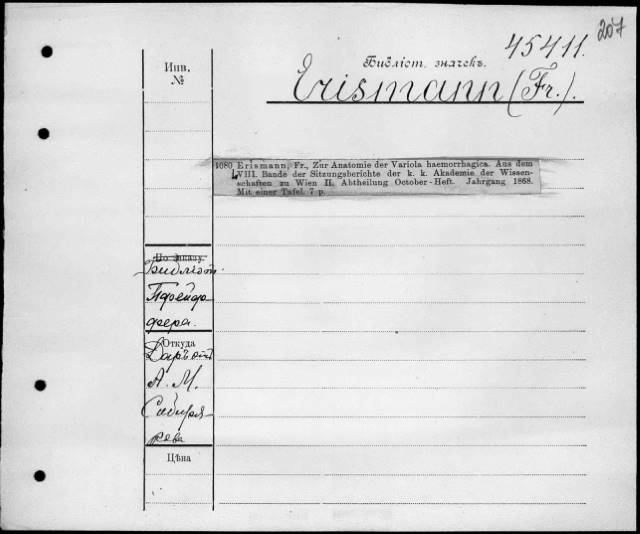 207
45411.
Библіот. значекъ.
Инв.
№
Erismann (Fr.).
4080 Erismann, Fr., Zur Anatomie der Variola haemorrhagica. Aus dem
LVIII. Bande der Sitzungsberichte der k. k. Akademie der Wissen-
schaften zu Wien II. Abtheilung October-Heft. Jahrgang 1868.
Mit einer Tafel. 7 p.
По заказу.
Библіот.
Пфейф
фера.
Откуда
Даръ отъ
А. М.
Сибиря-
рова
Цѣна